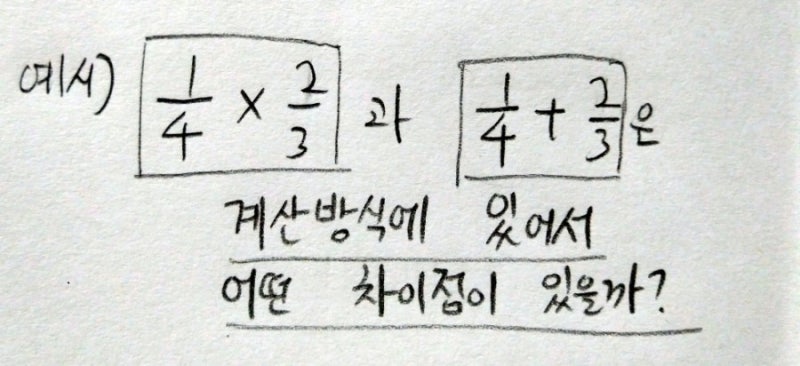 예시) 1/4 × 2/3 과 1/4 + 2/3 은
계산방식에 있어서
어떤 차이점이 있을까?